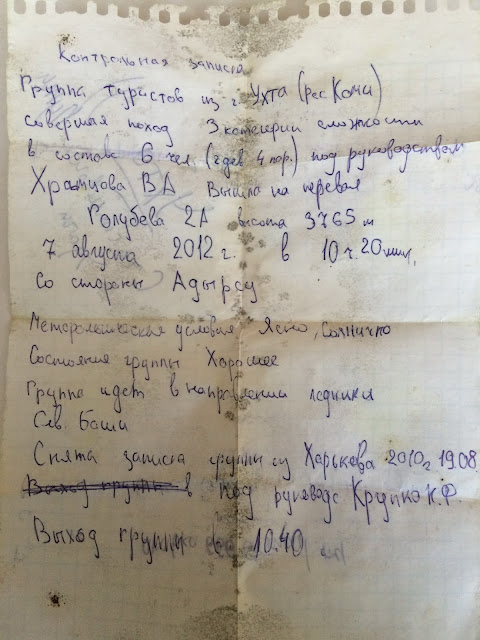 Контрольная записка
Группа туристов из г. Ухта (рес Коми)
совершая поход 3 категории сложности
в составе 6 чел (2 дев 4 пар.) под руководством
Храмцова ВА Вышла на перевал
Голубева 2А высота 3765 м
7 августа 2012 г. в 10 ч. 20 мин,
Со стороны Адырсу
Метеорологическая условия Ясно, Солнично
Состояние группы Хорошее
Группа идет в направлении ледника
Сев. Баши
Снята записка группы из Харькова 2010 г 19.08
Выход группы в под руководс Крупко К.Ф.
Выход группы 10.40